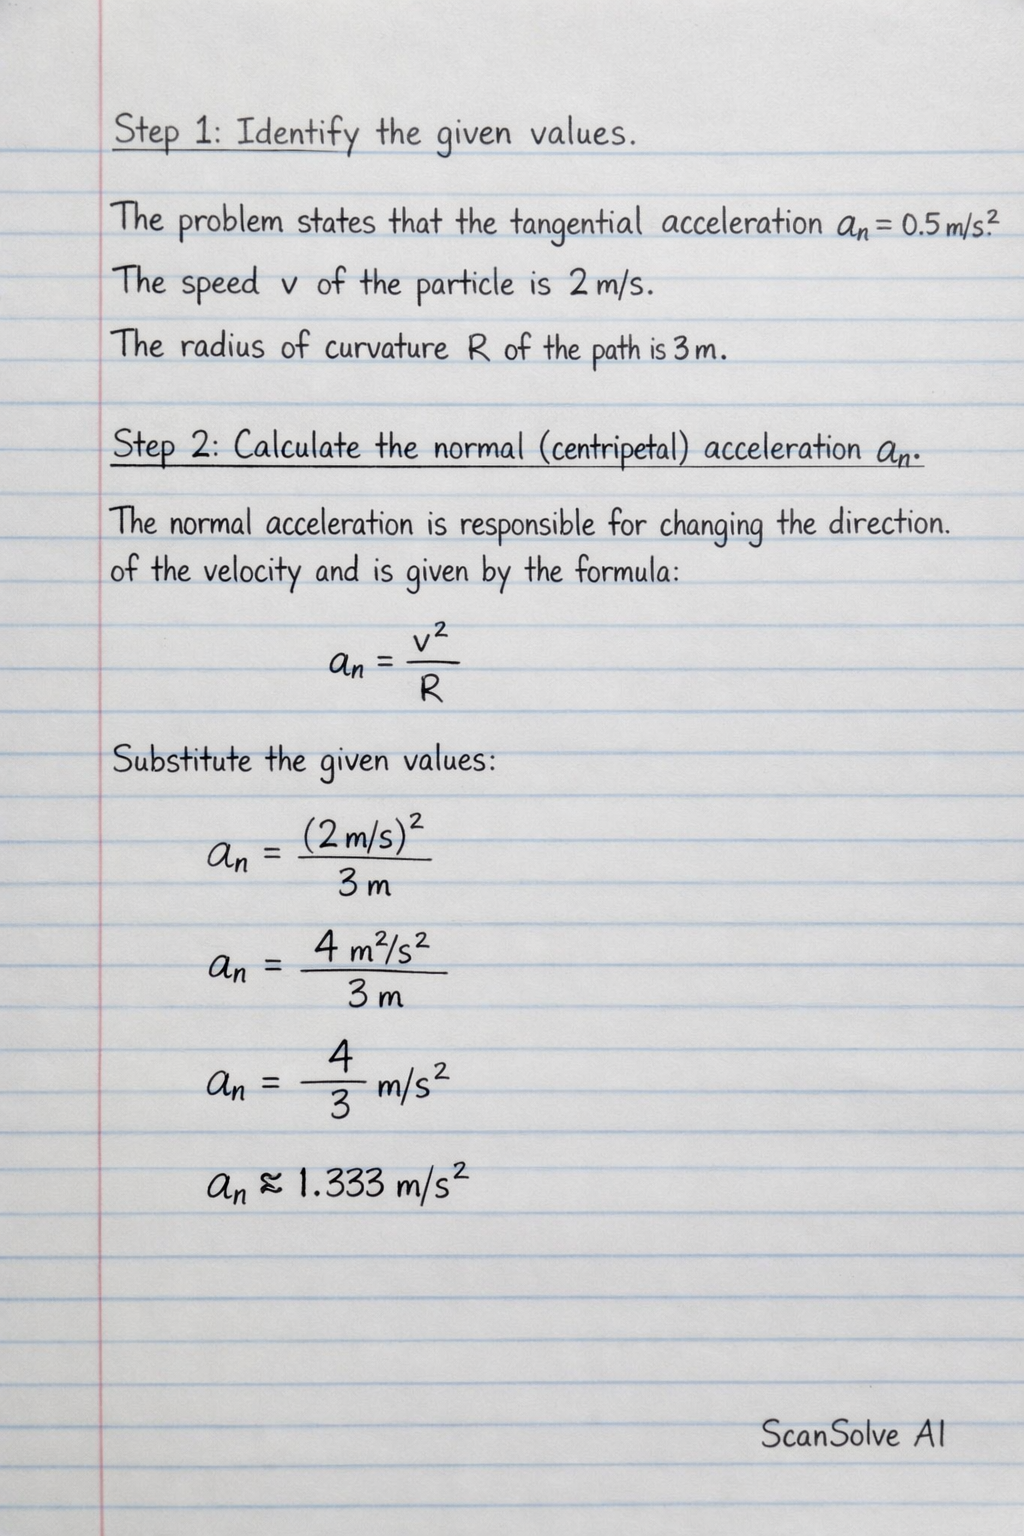 Step 1: Identify the given values.
The problem states that the tangential acceleration aₙ = 0.5 m/s².
The speed v of the particle is 2 m/s.
The radius of curvature R of the path is 3 m.
Step 2: Calculate the normal (centripetal) acceleration aₙ.
The normal acceleration is responsible for changing the direction.
of the velocity and is given by the formula:
aₙ = v²/R
Substitute the given values:
aₙ = (2 m/s)²/3 m
aₙ = 4 m²/s²/3 m
aₙ = 4/3 m/s²
aₙ ≈ 1.333 m/s²
ScanSolve AI